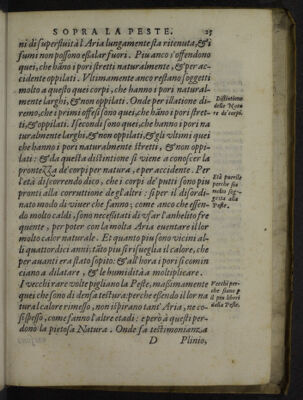 SOPRA LA PESTE. 25
ni di superfluità l'Aria lungamente sta ritenuta, & i
fumi non possono essalar fuori. Piu anco s'offendono
quei, che hãno i pori stretti naturalmente, & per ac-
cidente oppilati. Vltimamente anco restano soggetti
molto a questo quei corpi, che hanno i pori natural-
mente larghi, & non oppilati. Onde per illatione di-
remo, che i primi offesi sono quei, che hãno i pori stret-
ti, & oppilati. I secondi sono quei, che hanno i pori na
turalmente larghi, & non oppilati, & gli vltimi quei
che hanno i pori naturalmente stretti, & non oppi-
lati: & da questa distintione si viene a conoscer la
prontezza de' corpi per natura, e per accidente. Per
l'età discorrendo dico, che i corpi de' putti sono piu
pronti alla corruttione de gl'altri: si per il disordi-
nato modo di viuer che fanno; come anco che essen-
do molto caldi, sono necessitati di vsar l'anhelito fre
quente, per poter con la molta Aria euentare il lor
molto calor naturale. Et quanto piu sono vicini al-
li quattordici anni, tãto piu si risueglia il calore, che
per auanti era stato sopito: & all'hora i pori si comin
ciano a dilatare, & le humidità a moltiplicare.
I vecchi rare volte pigliano la Peste, massimamente
quei che sono di densa testura: perche essendo il lor na
tural calore rimesso, non ispirano tant'Aria, ne co-
si spesso, come fanno l'altre etadi: e però à questi per-
dono la pietosa Natura. Onde fa testimonianza
D Plinio,
Distintione
delle Natu
re de' corpi.
Età puerile
perche sia
molto sog-
getta alla
Peste.
Vecchi per-
che siano p
il piu liberi
dalla Peste.